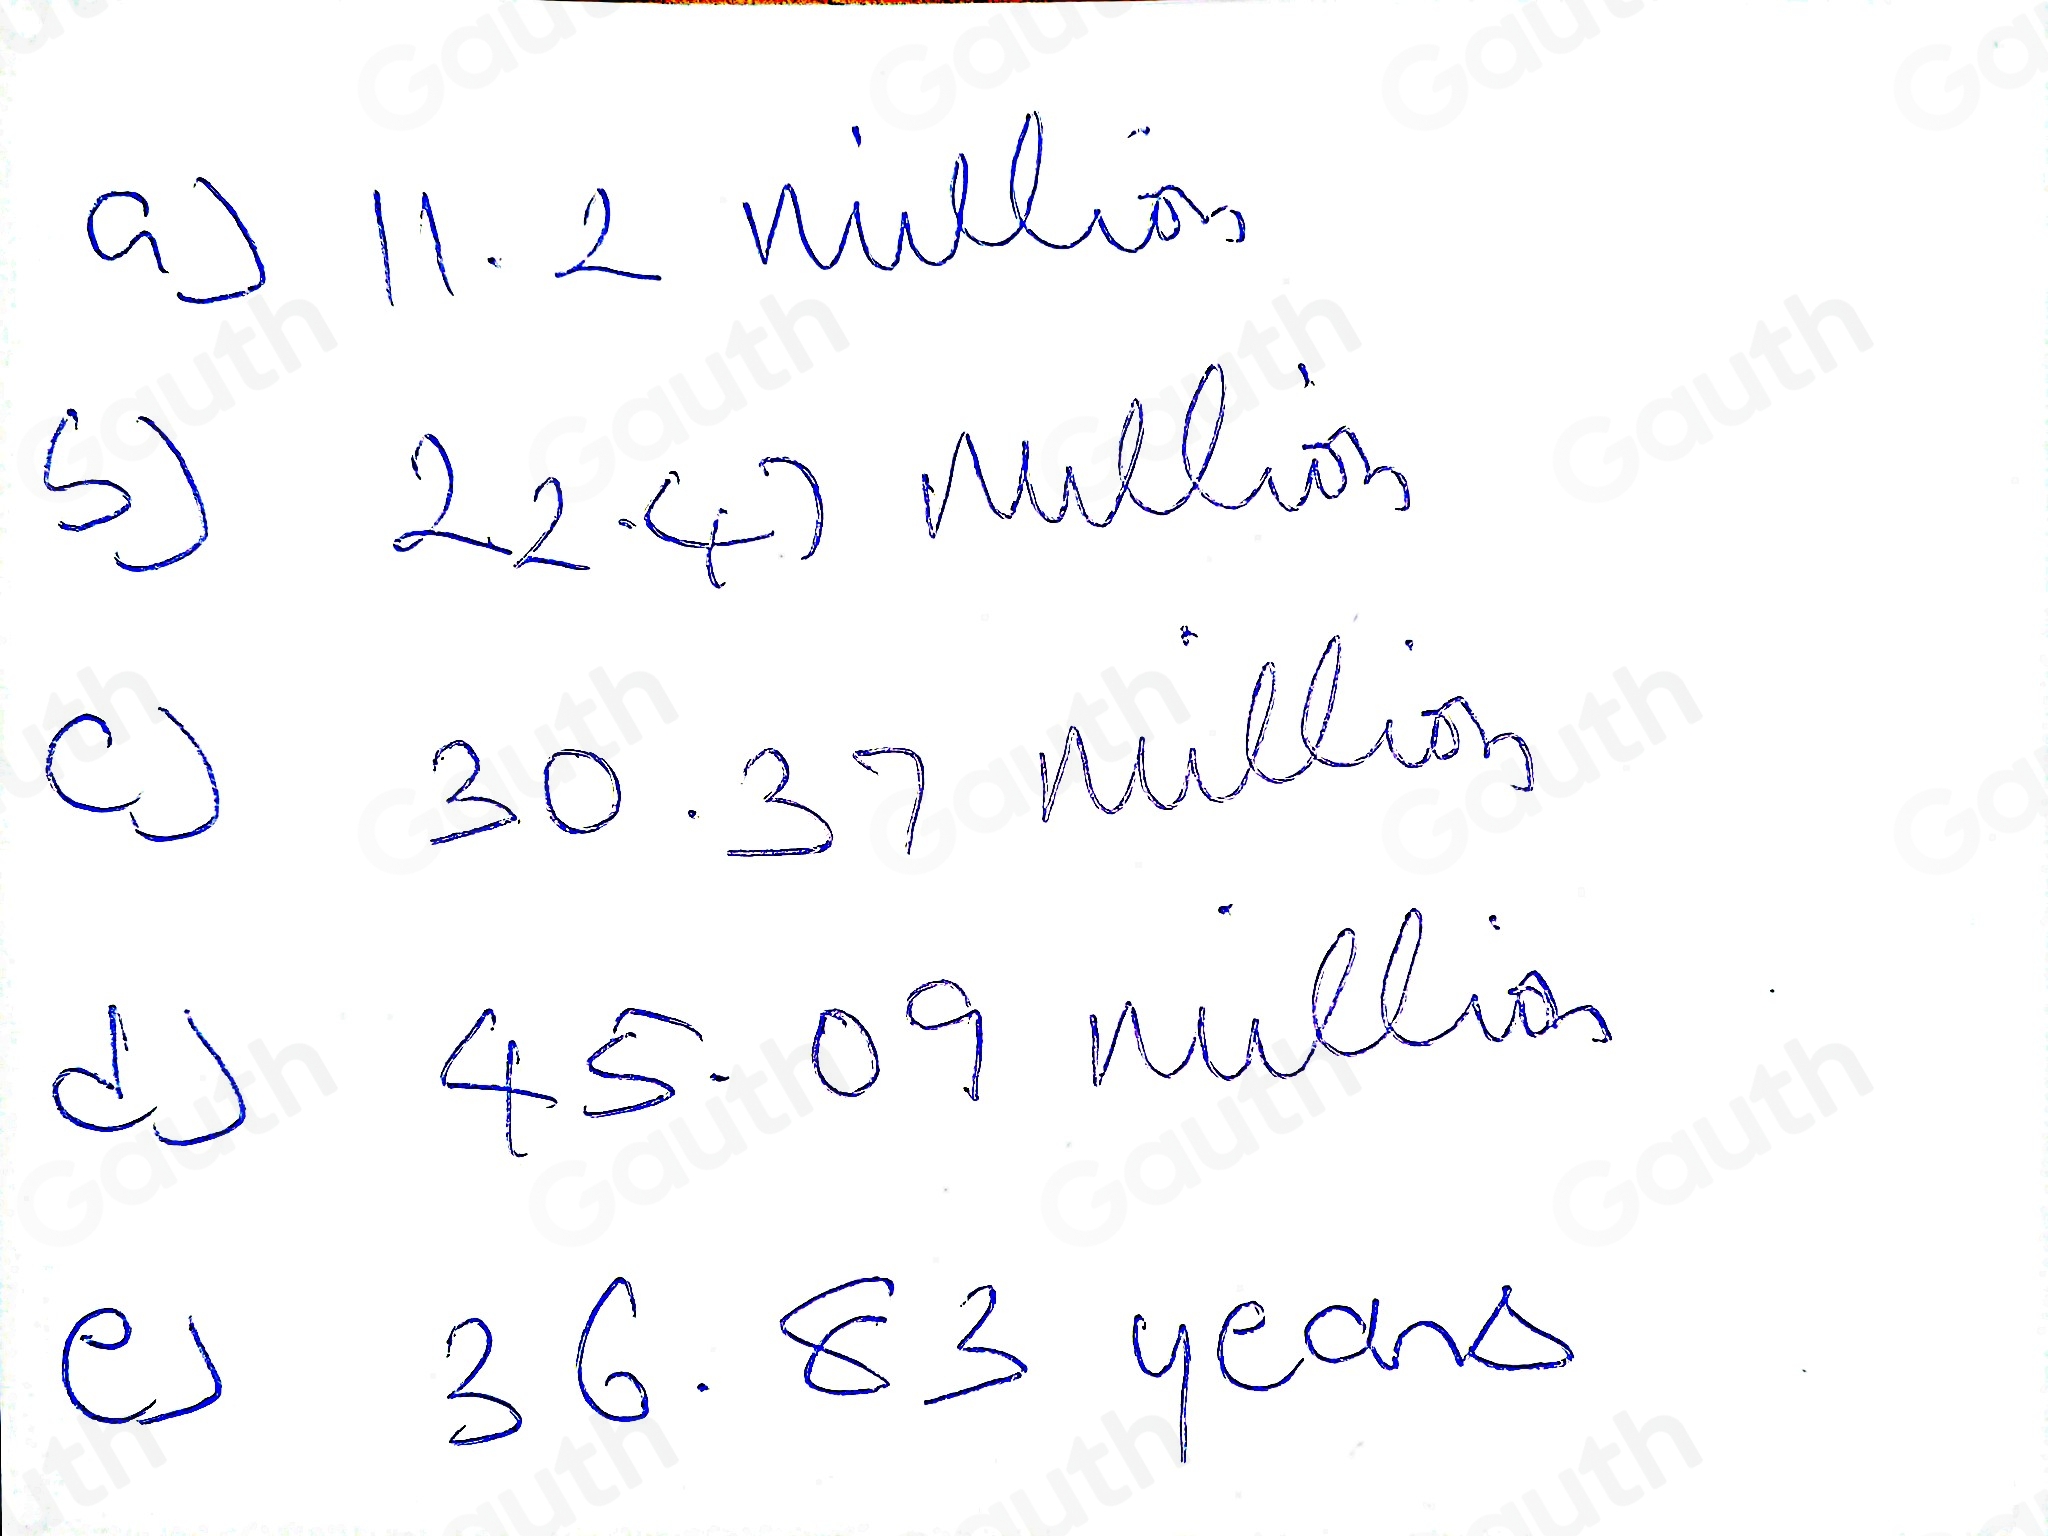 a) 11.2 million
b) 22.47 million
c) 30.37 million
d) 45.09 million
e) 36.83 years